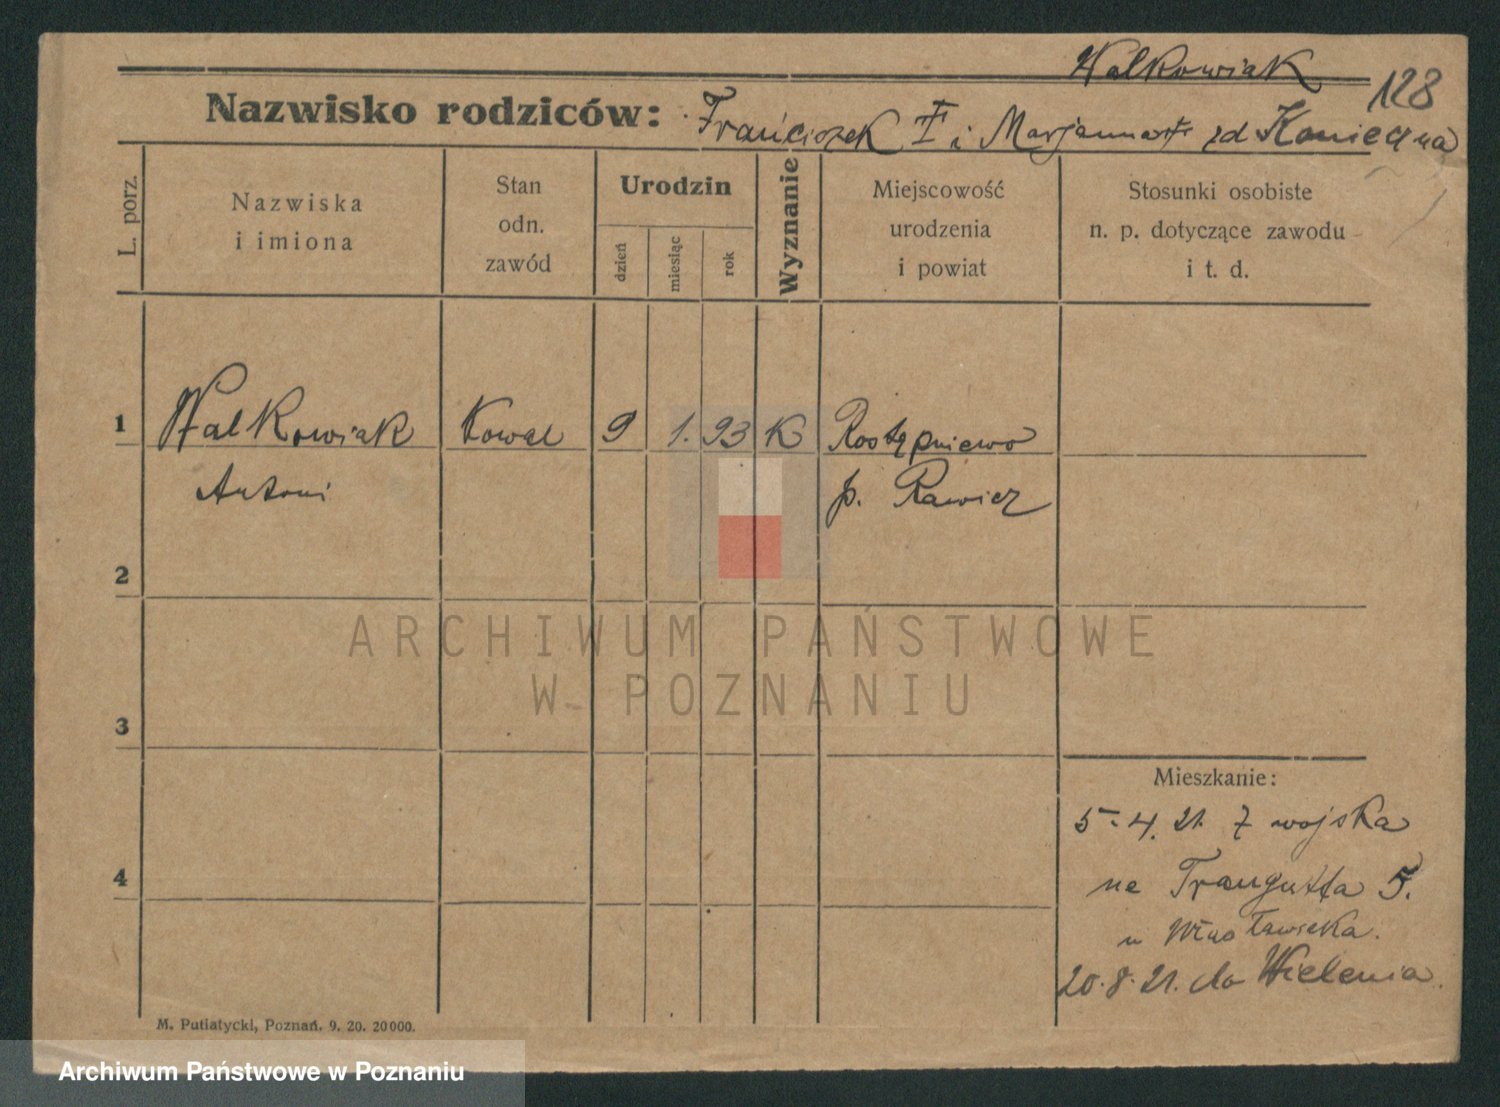 Walkowiak
128
Nazwisko rodziców: Franciszek † i Marjanna † zd Konieczna
L. porz.
Nazwiska
i imiona
Stan
odn.
zawód
Urodzin
dzień
miesiąc
rok
Wyznanie
Miejscowość
urodzenia
i powiat
Stosunki osobiste
n. p. dotyczące zawodu
i t. d.
1 Walkowiak Kowal 9 1. 93 K Rostępniewo
Antoni p. Rawicz
2
3
4
Mieszkanie:
5.4.21. Z wojska
na Traugutta 5.
u Włosławieka.
20.8.21. do Wielenia.
M. Putiatycki, Poznań. 9. 20. 20000.
ARCHIWUM PAŃSTWOWE
W POZNANIU
Archiwum Państwowe w Poznaniu